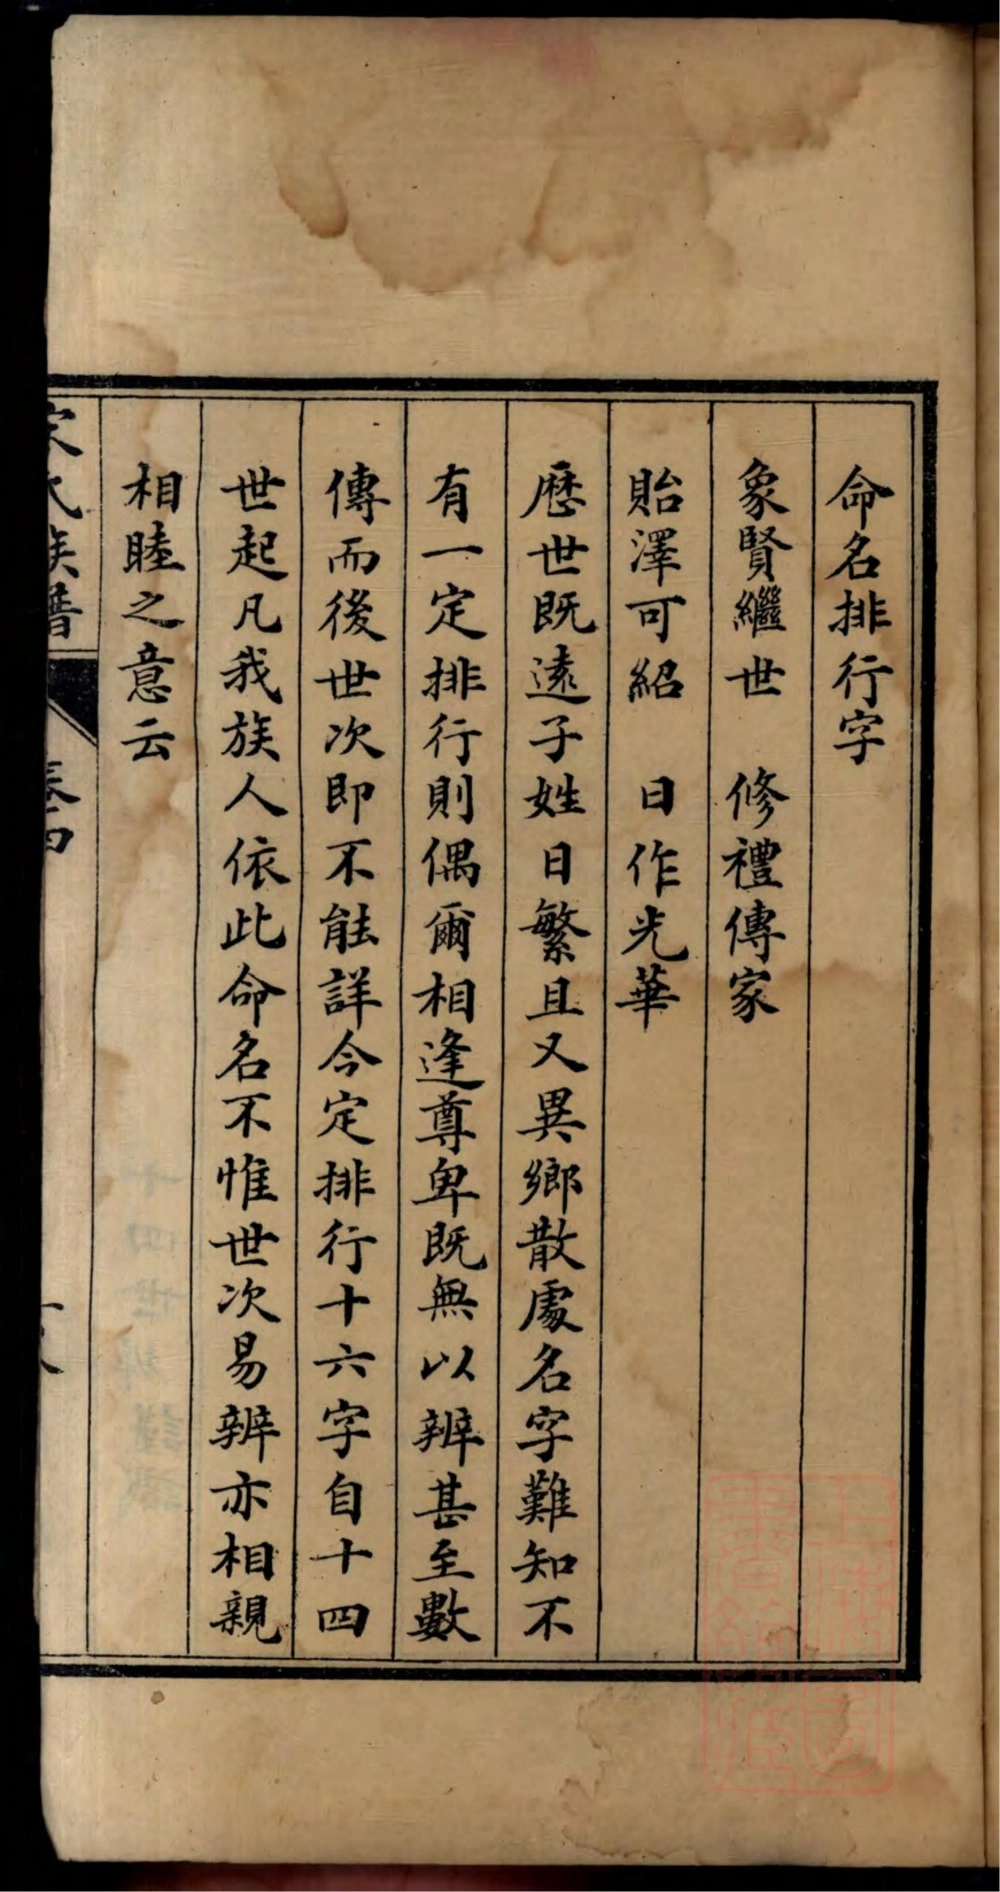 命名排行字
象賢繼世　修禮傳家
貽澤可紹　日作光華
歷世既遠子姓日繁且又異鄉散處名字難知不
有一定排行則偶爾相逢尊卑既無以辨甚至數
傳而後世次即不能詳今定排行十六字自十四
世起凡我族人依此命名不惟世次易辨亦相親
相睦之意云
氏族譜
卷四